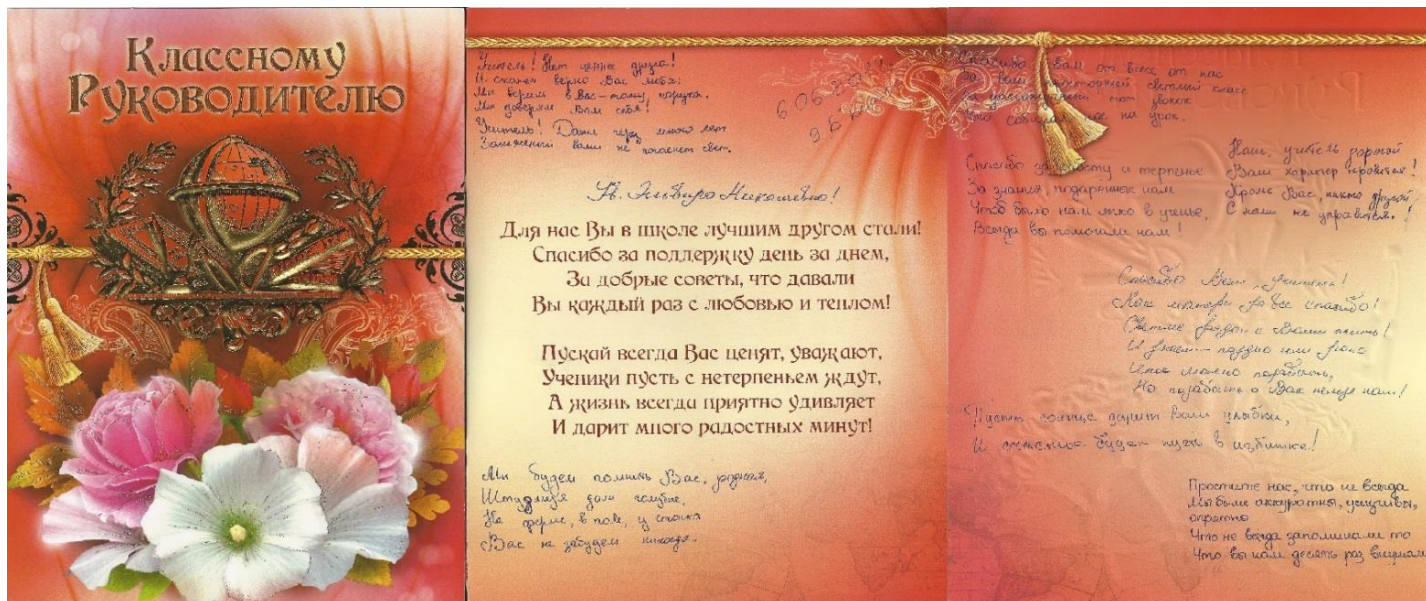 Классному
Руководителю
Учитель! Нет ценнее друга!
И скажет верно Вас любя:
Мы верим в Вас –
Мы доверяли Вам себя!
Учитель! Даже через много лет
Зажженный вами не погаснет свет.
6.06.
9 Б
Ув. Эльвира Николаевна!
Для нас Вы в школе лучшим другом стали!
Спасибо за поддержку день за днем,
За добрые советы, что давали
Вы каждый раз с любовью и теплом!
Пускай всегда Вас ценят, уважают,
Ученики пусть с нетерпеньем ждут,
А жизнь всегда приятно удивляет
И дарит много радостных минут!
Мы будем помнить Вас, родная,
Штудируя дали голубые,
На ферме, в поле, у станка
Вас не забудем никогда.
Спасибо Вам от всех от нас
За ваш просторный светлый класс
звонок
Что собирал нас на урок.
Спасибо за работу и терпенье
За знания, подаренные нам
Чтоб было нам легко в ученье,
Всегда вы помогали нам!
Наш, учитель дорогой
Ваш характер нравится!
Кроме Вас, никто другой
С нами не управится!
Спасибо Вам, учитель!
Как матери за все спасибо!
Светлее рядом с Вами жить!
И знаем – поздно или рано
Иное можно позабыть,
Но позабыть о Вас нельзя нам!
Пусть солнце дарит Вам улыбки,
И счастье будет пусть в избытке!
Простите нас, что не всегда
Мы были аккуратны, усидчивы,
опрятно
Что не всегда запоминали то
Что вы нам десять раз внушали